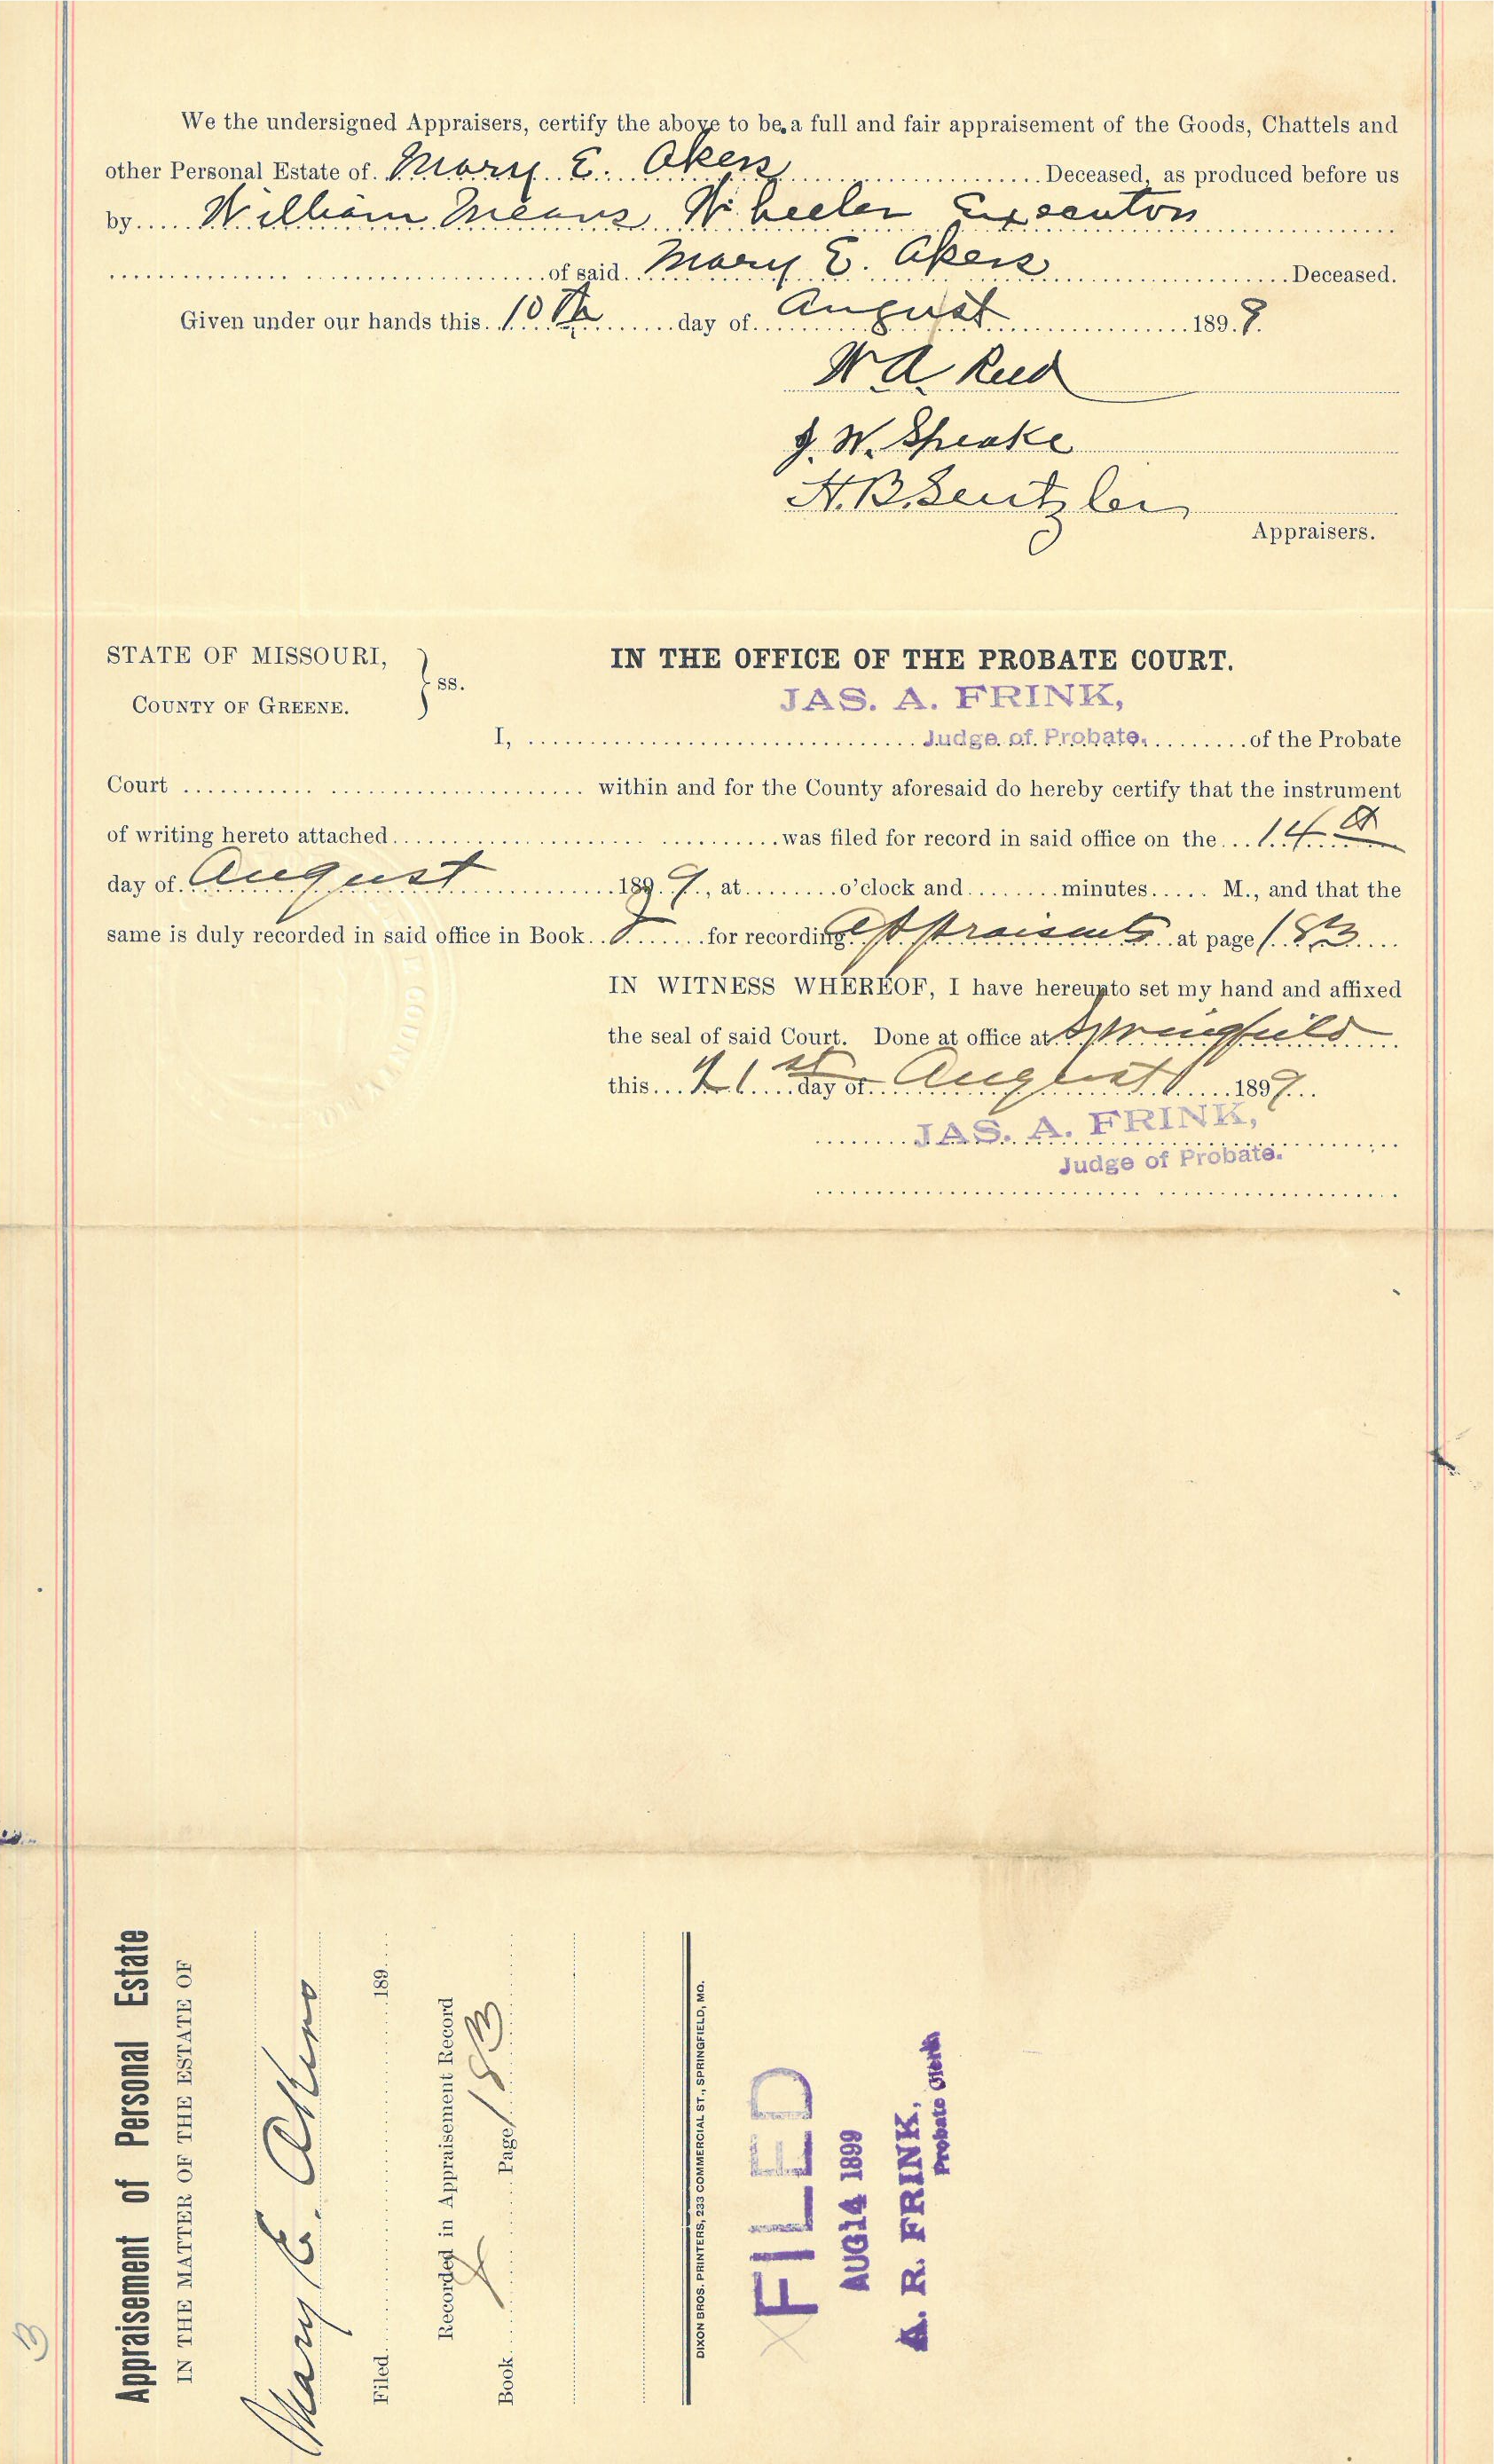 We the undersigned Appraisers, certify the above to be a full and fair appraisement of the Goods, Chattels and
other Personal Estate of Mary E. Akers Deceased, as produced before us
by William Means Wheeler Executor
of said Mary E. Akers Deceased.
Given under our hands this 10th day of August 1899.
W A Reed
J. W. Speake
H. B. Sentzler
Appraisers.
STATE OF MISSOURI,
COUNTY OF GREENE.
} ss.
IN THE OFFICE OF THE PROBATE COURT.
JAS. A. FRINK,
I, Judge of Probate, of the Probate
Court within and for the County aforesaid do hereby certify that the instrument
of writing hereto attached was filed for record in said office on the 14th
day of August 1899, at o'clock and minutes M., and that the
same is duly recorded in said office in Book for recording Appraisements at page 183
IN WITNESS WHEREOF, I have hereunto set my hand and affixed
the seal of said Court. Done at office at Springfield
this 21st day of August 1899
JAS. A. FRINK,
Judge of Probate.
Appraisement of Personal Estate
IN THE MATTER OF THE ESTATE OF
Mary E. Akers
Filed 189
Recorded in Appraisement Record
Book Page 183
DIXON BROS. PRINTERS, 233 COMMERCIAL ST., SPRINGFIELD, MO.
FILED
AUG 14 1899
A. R. FRINK,
Probate Clerk
3